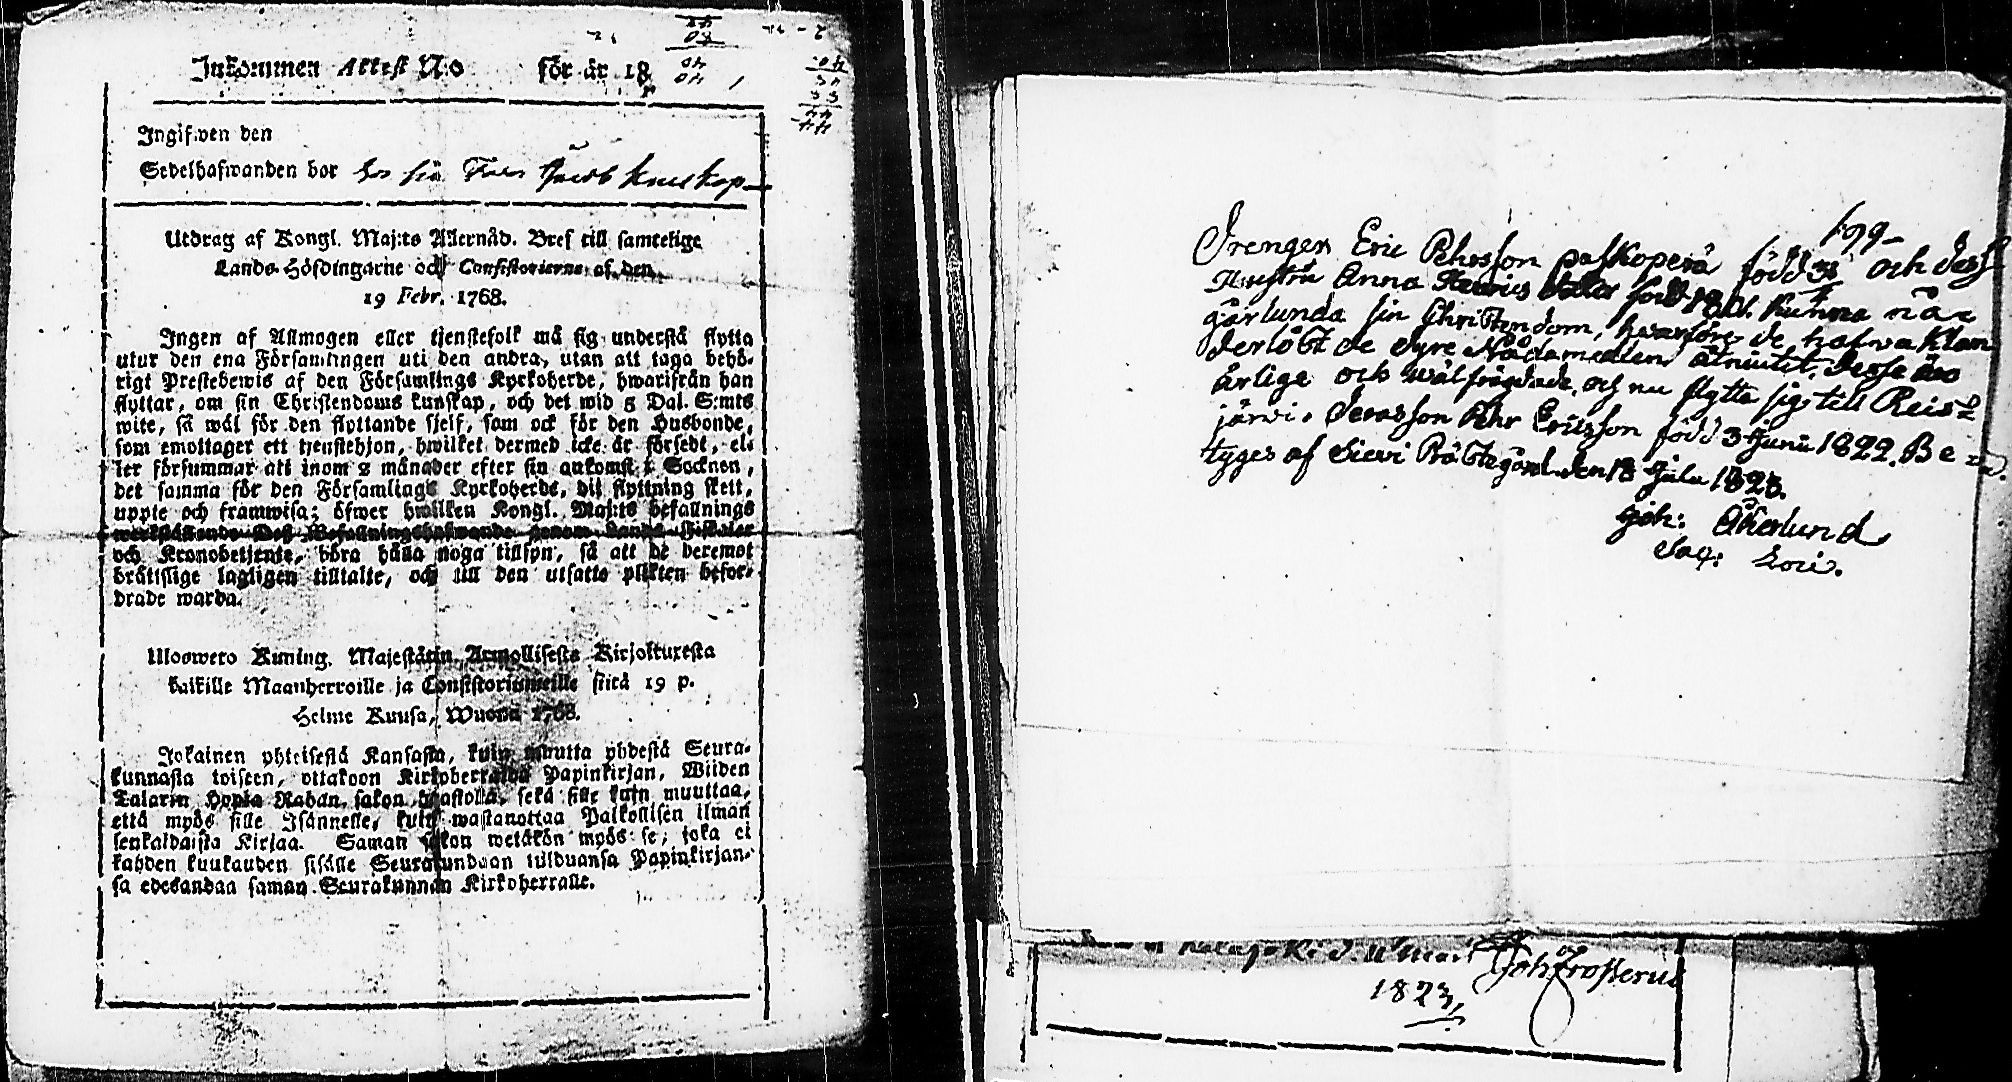 Inkommen Attest N:o för år 18
Ingifwen den
Sedelhafwanden bor hos sin Far Jacob
Utdrag af Kongl. Maj:ts Allernåd. Bref till samtelige
Lands-Höfdingarne och Consistorierne af den
19 Febr. 1768.
Ingen af Allmogen eller tjenstefolk må sig understå flytta
utur den ena Församlingen uti den andra, utan att taga behö-
rigt Prestebewis af den Församlings Kyrkoherde, hwarifrån han
flyttar, om sin Christendoms kunskap, och det wid 5 Dal. S:mts
wite, så wäl för den flyttande sjelf, som ock för den Husbonde,
som emottager ett tjenstehjon, hwilket dermed icke är försedt, el-
ler försummar att inom 2 månader efter sin ankomst i Socknen,
det samma för den Församlings Kyrkoherde, dit flyttning skett,
uppte och framwisa; öfwer hwilken Kongl. Maj:ts befallnings
werkställande Dess Befallningshafwande genom Lands-Fiskaler
och Kronobetjente, böra hålla noga tillsyn, så att de deremot
brätslige lagligen tilltalte, och till den utsatte plikten befor-
drade warda.
Uloswero Kuning. Majestätin Armollisesta Kirjoituxesta
kaikille Maanherroille ja Consistoriumeille siitä 19 p.
Helme Kuusa, Wuonna 1768.
Jokainen yhteisestä Kansasta, kuin muutta yhdestä Seura-
kunnasta toiseen, ottakoon Kirkoherralda Papinkirjan, Wiiden
Talarin Hopia Rahan sakon haastolla, sekä sille kuin muuttaa,
että myös sille Isännelle, kuin wastanottaa Palkollisen ilman
senkaldaista Kirjaa. Saman sakon wetäkön myös se, joka ei
kahden kuukauden sisälle Seurakundaan tulduansa Papinkirjan-
sa edesandaa saman Seurakunnan Kirkoherralle.
199-
Drengen Eric Pehrsson född och dess
Hustru Anna född kunna när
garlunda sin Christendom, hwarföre de hafwa klan
derlöst de dyre Nådamedlen åtniutit. Desse äro
ärlige och wälfrägdade, och nu flytta sig till Reis-
järwi. Deras son Pehr Ericsson född 3 Junii 1822. Be-
tyges af Sievi Prästegård den 18 Julii 1823.
Joh: Åkerlund
Sac: Loci.
1823,
Joh